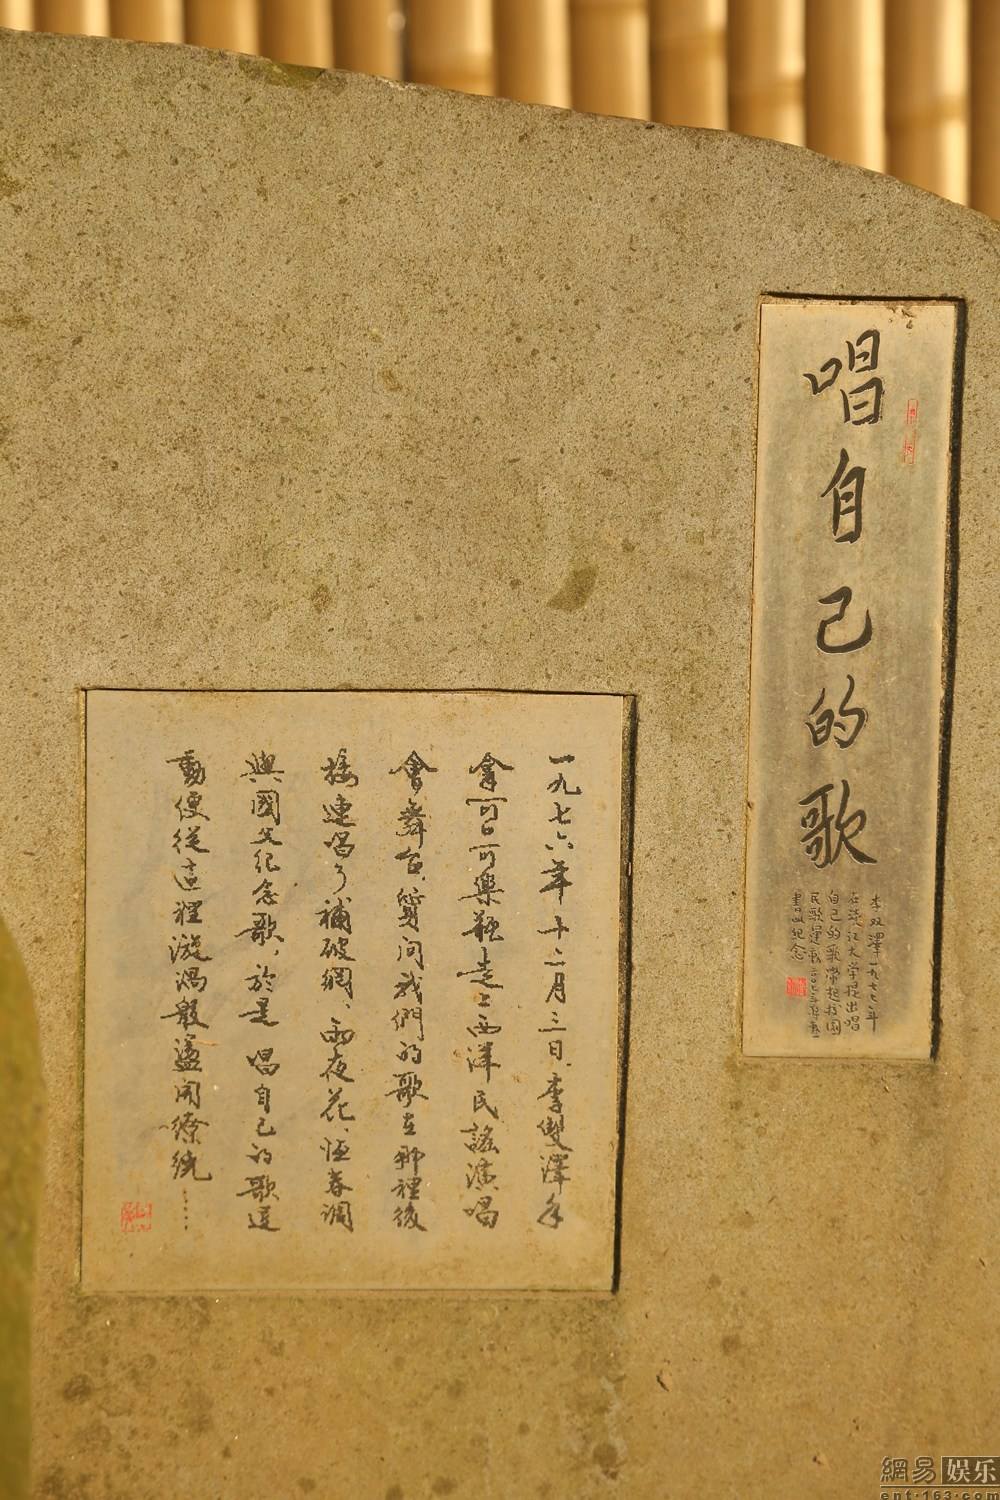 唱自己的歌
李双澤一九七七年
在淡江大学提出唱
自己的歌帶起校園
民歌運動
書以紀念
一九七六年十二月三日,李雙澤手
拿可口可樂瓶走上西洋民謠演唱
會舞台,質問我們的歌在那裡後
接連唱了補破網、雨夜花、恆春調
與國父紀念歌,於是 唱自己的歌運
動便從這裡漩渦般盪開繚繞……
網易娱乐
ent.163.com